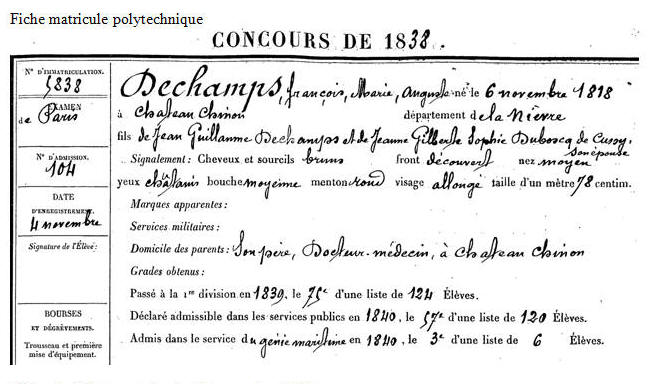 Fiche matricule polytechnique
CONCOURS DE 1838.
N° D'IMMATRICULATION.
5838
EXAMEN
de Paris
N° D'ADMISSION.
104
DATE
D'ENREGISTREMENT.
4 novembre
Signature de l'Élève:
BOURSES
ET DÉGRÈVEMENTS.
Trousseau et première
mise d'équipement.
Dechamps, françois, Marie, Auguste né le 6 novembre 1818
à Chateau Chinon département de la Nièvre
fils de Jean Guillaume Dechamps et de Jeanne Gilberte Sophie Duboscq de Cussy,
son épouse
Signalement : Cheveux et sourcils bruns front découvert nez moyen
yeux châtains bouche moyenne menton rond visage allongé taille d'un mètre 78 centim.
Marques apparentes :
Services militaires :
Domicile des parents : Son père, Docteur-médecin, à Chateau Chinon
Grades obtenus :
Passé à la 1re division en 1839, le 75e d'une liste de 124 Élèves.
Déclaré admissible dans les services publics en 1840, le 57e d'une liste de 120 Élèves.
Admis dans le service du génie maritime en 1840, le 3e d'une liste de 6 Élèves.